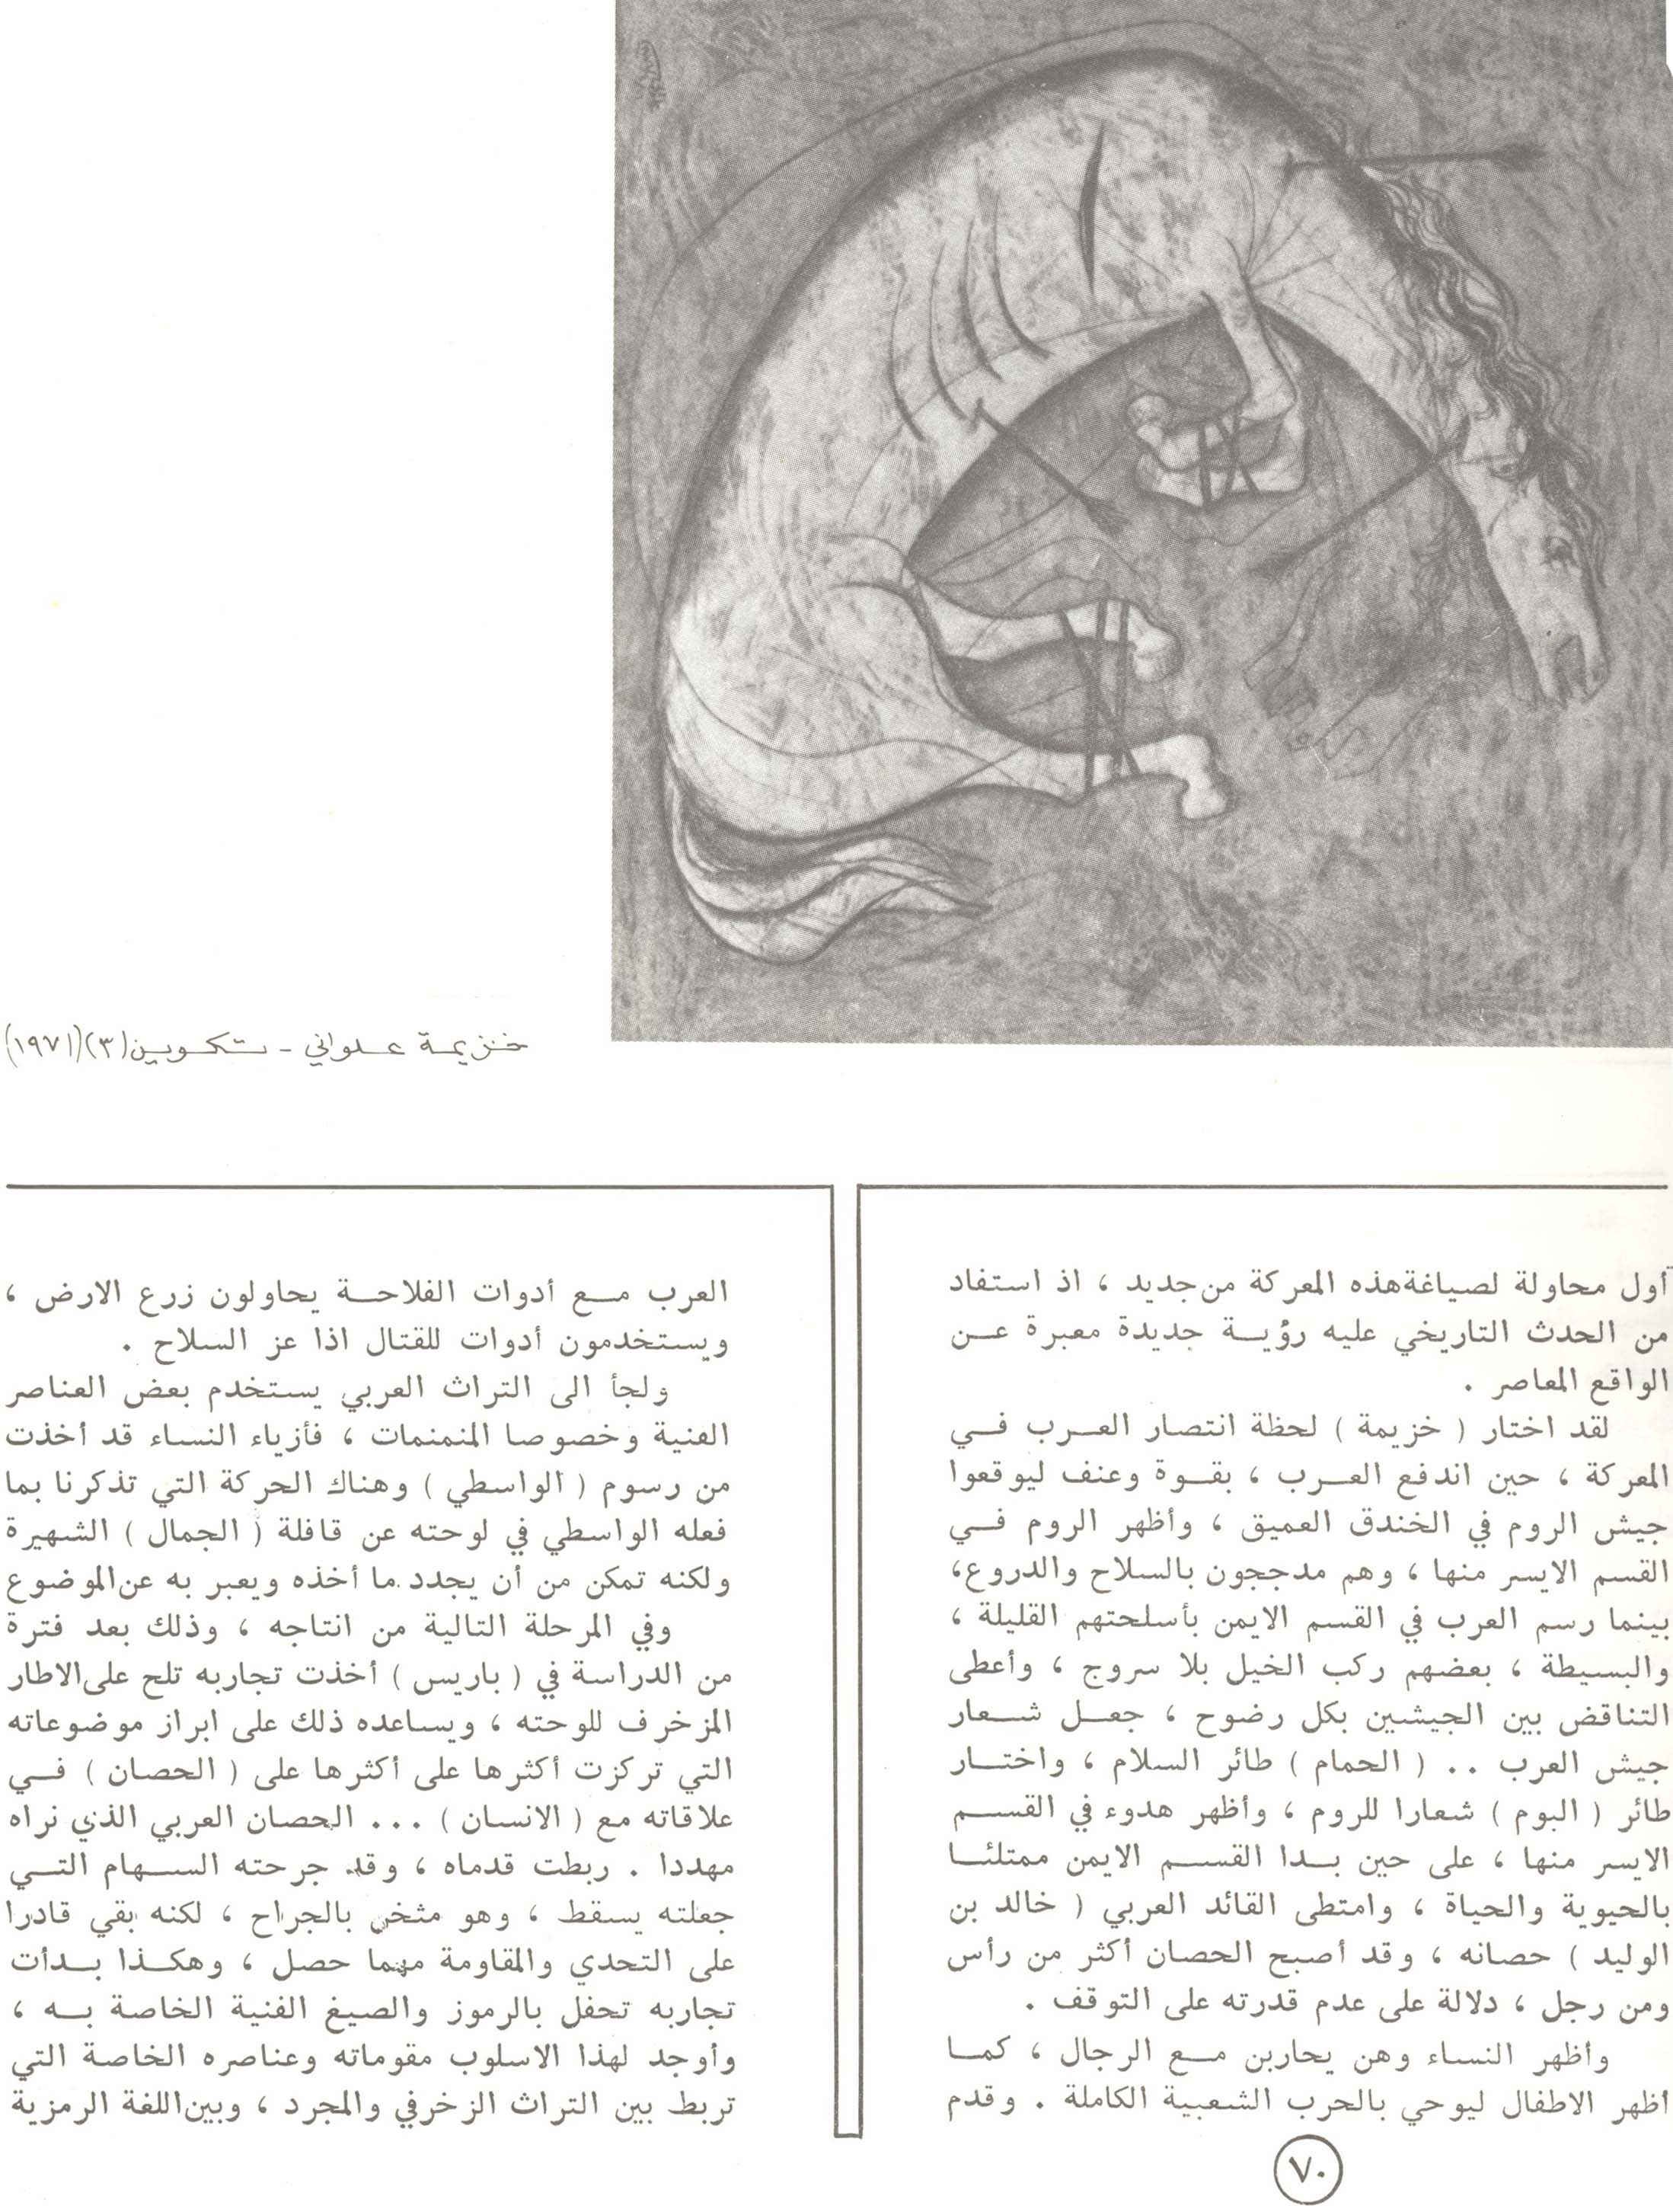 خزيمة علواني - تكوين (٣) (١٩٧١)
أول محاولة لصياغة هذه المعركة من جديد ، اذ استفاد
من الحدث التاريخي عليه رؤيــة جديدة معبرة عــن
الواقع المعاصر .
لقد اختار ( خزيمة ) لحظة انتصار العــرب فــي
المعركة ، حين اندفع العــرب ، بقــوة وعنف ليوقعوا
جيش الروم في الخندق العميق ، وأظهر الروم فــي
القسم الايسر منها ، وهم مدججون بالسلاح والدروع،
بينما رسم العرب في القسم الايمن بأسلحتهم القليلة ،
والبسيطة ، بعضهم ركب الخيل بلا سروج ، وأعطى
التناقض بين الجيشين بكل رضوح ، جعــل شــعار
جيش العرب .. ( الحمام ) طائر السلام ، واختــار
طائر ( البوم ) شعارا للروم ، وأظهر هدوء في القســم
الايسر منها ، على حين بــدا القســم الايمن ممتلئــا
بالحيوية والحياة ، وامتطى القائد العربي ( خالد بن
الوليد ) حصانه ، وقد أصبح الحصان أكثر من رأس
ومن رجل ، دلالة على عدم قدرته على التوقف .
وأظهر النساء وهن يحاربن مــع الرجال ، كمــا
اظهر الاطفال ليوحي بالحرب الشعبية الكاملة . وقدم
العرب مــع أدوات الفلاحــة يحاولون زرع الارض ،
ويستخدمون أدوات للقتال اذا عز السلاح .
ولجأ الى التراث العربي يستخدم بعض العناصر
الفنية وخصوصا المنمنمات ، فأزياء النساء قد أخذت
من رسوم ( الواسطي ) وهناك الحركة التي تذكرنا بما
فعله الواسطي في لوحته عن قافلة ( الجمال ) الشهيرة
ولكنه تمكن من أن يجدد ما أخذه ويعبر به عن الموضوع
وفي المرحلة التالية من انتاجه ، وذلك بعد فترة
من الدراسة في ( باريس ) أخذت تجاربه تلح على الاطار
المزخرف للوحته ، ويساعده ذلك على ابراز موضوعاته
التي تركزت أكثرها على أكثرها على ( الحصان ) فــي
علاقاته مع ( الانسان ) ... الحصان العربي الذي نراه
مهددا . ربطت قدماه ، وقد جرحته الســهام التــي
جعلته يسقط ، وهو مثخن بالجراح ، لكنه بقي قادرا
على التحدي والمقاومة مهما حصل ، وهكــذا بــدأت
تجاربه تحفل بالرموز والصيغ الفنية الخاصة بــه ،
وأوجد لهذا الاسلوب مقوماته وعناصره الخاصة التي
تربط بين التراث الزخرفي والمجرد ، وبين اللغة الرمزية
٧٠